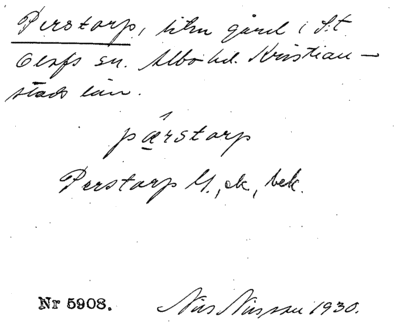 Perstorp, liten gård i S:t
Olofs sn. Albo hd. Kristian-
stads län.
pärstorp
Perstorp G., ek, bek.
Nr 5908.
Nils Nilsson 1930.